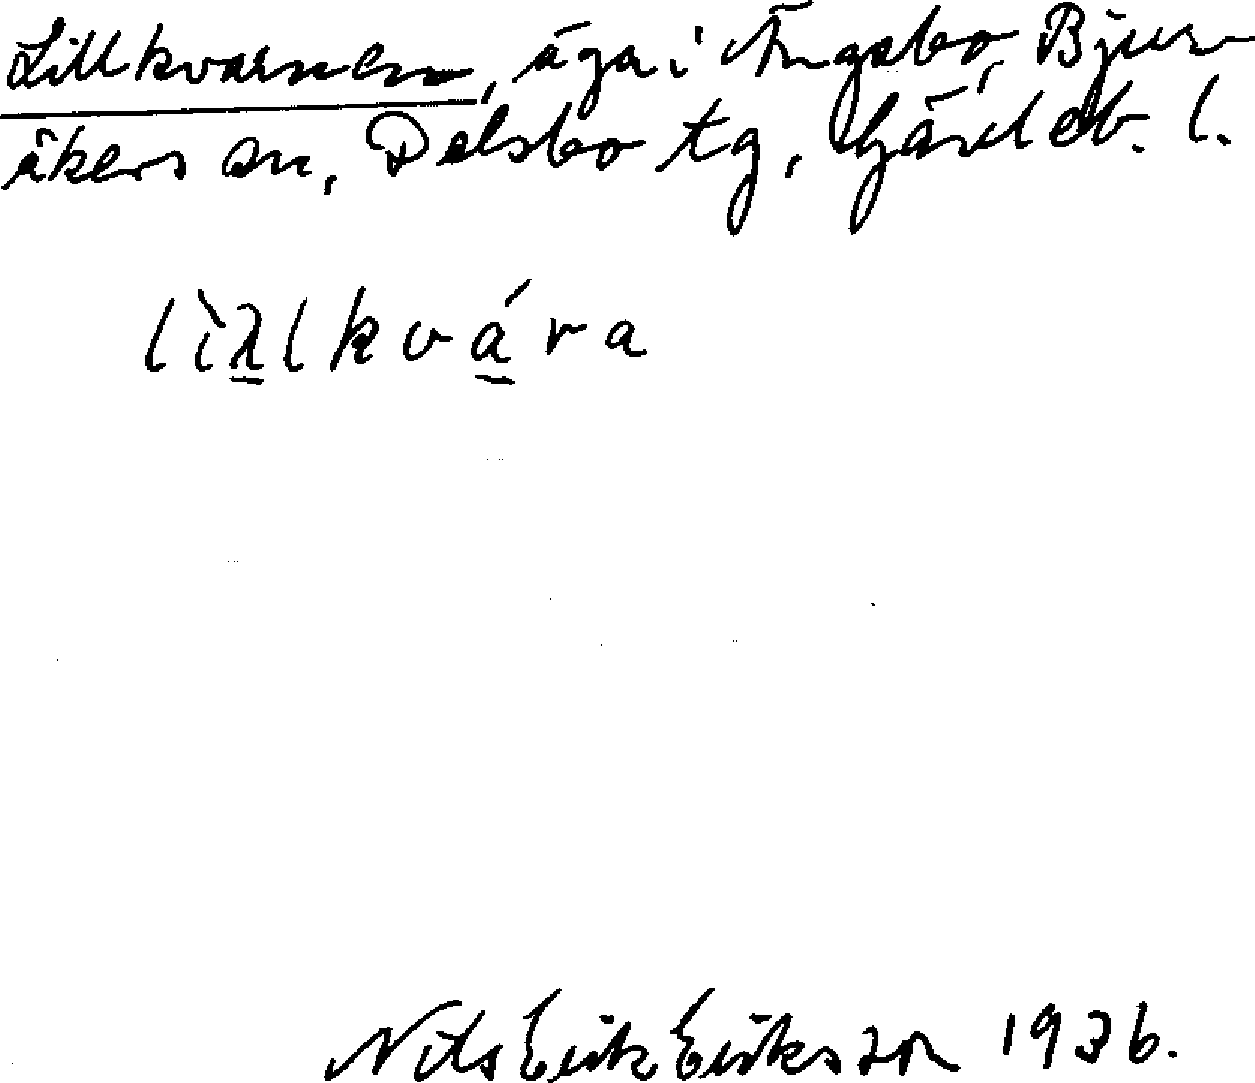 Lillkvarnen, äga i Ängsbo, Bjur-
åkers sn, Delsbo tg, Gävleb. l.
lìλlkvára
Nils Erik Eriksson 1936.